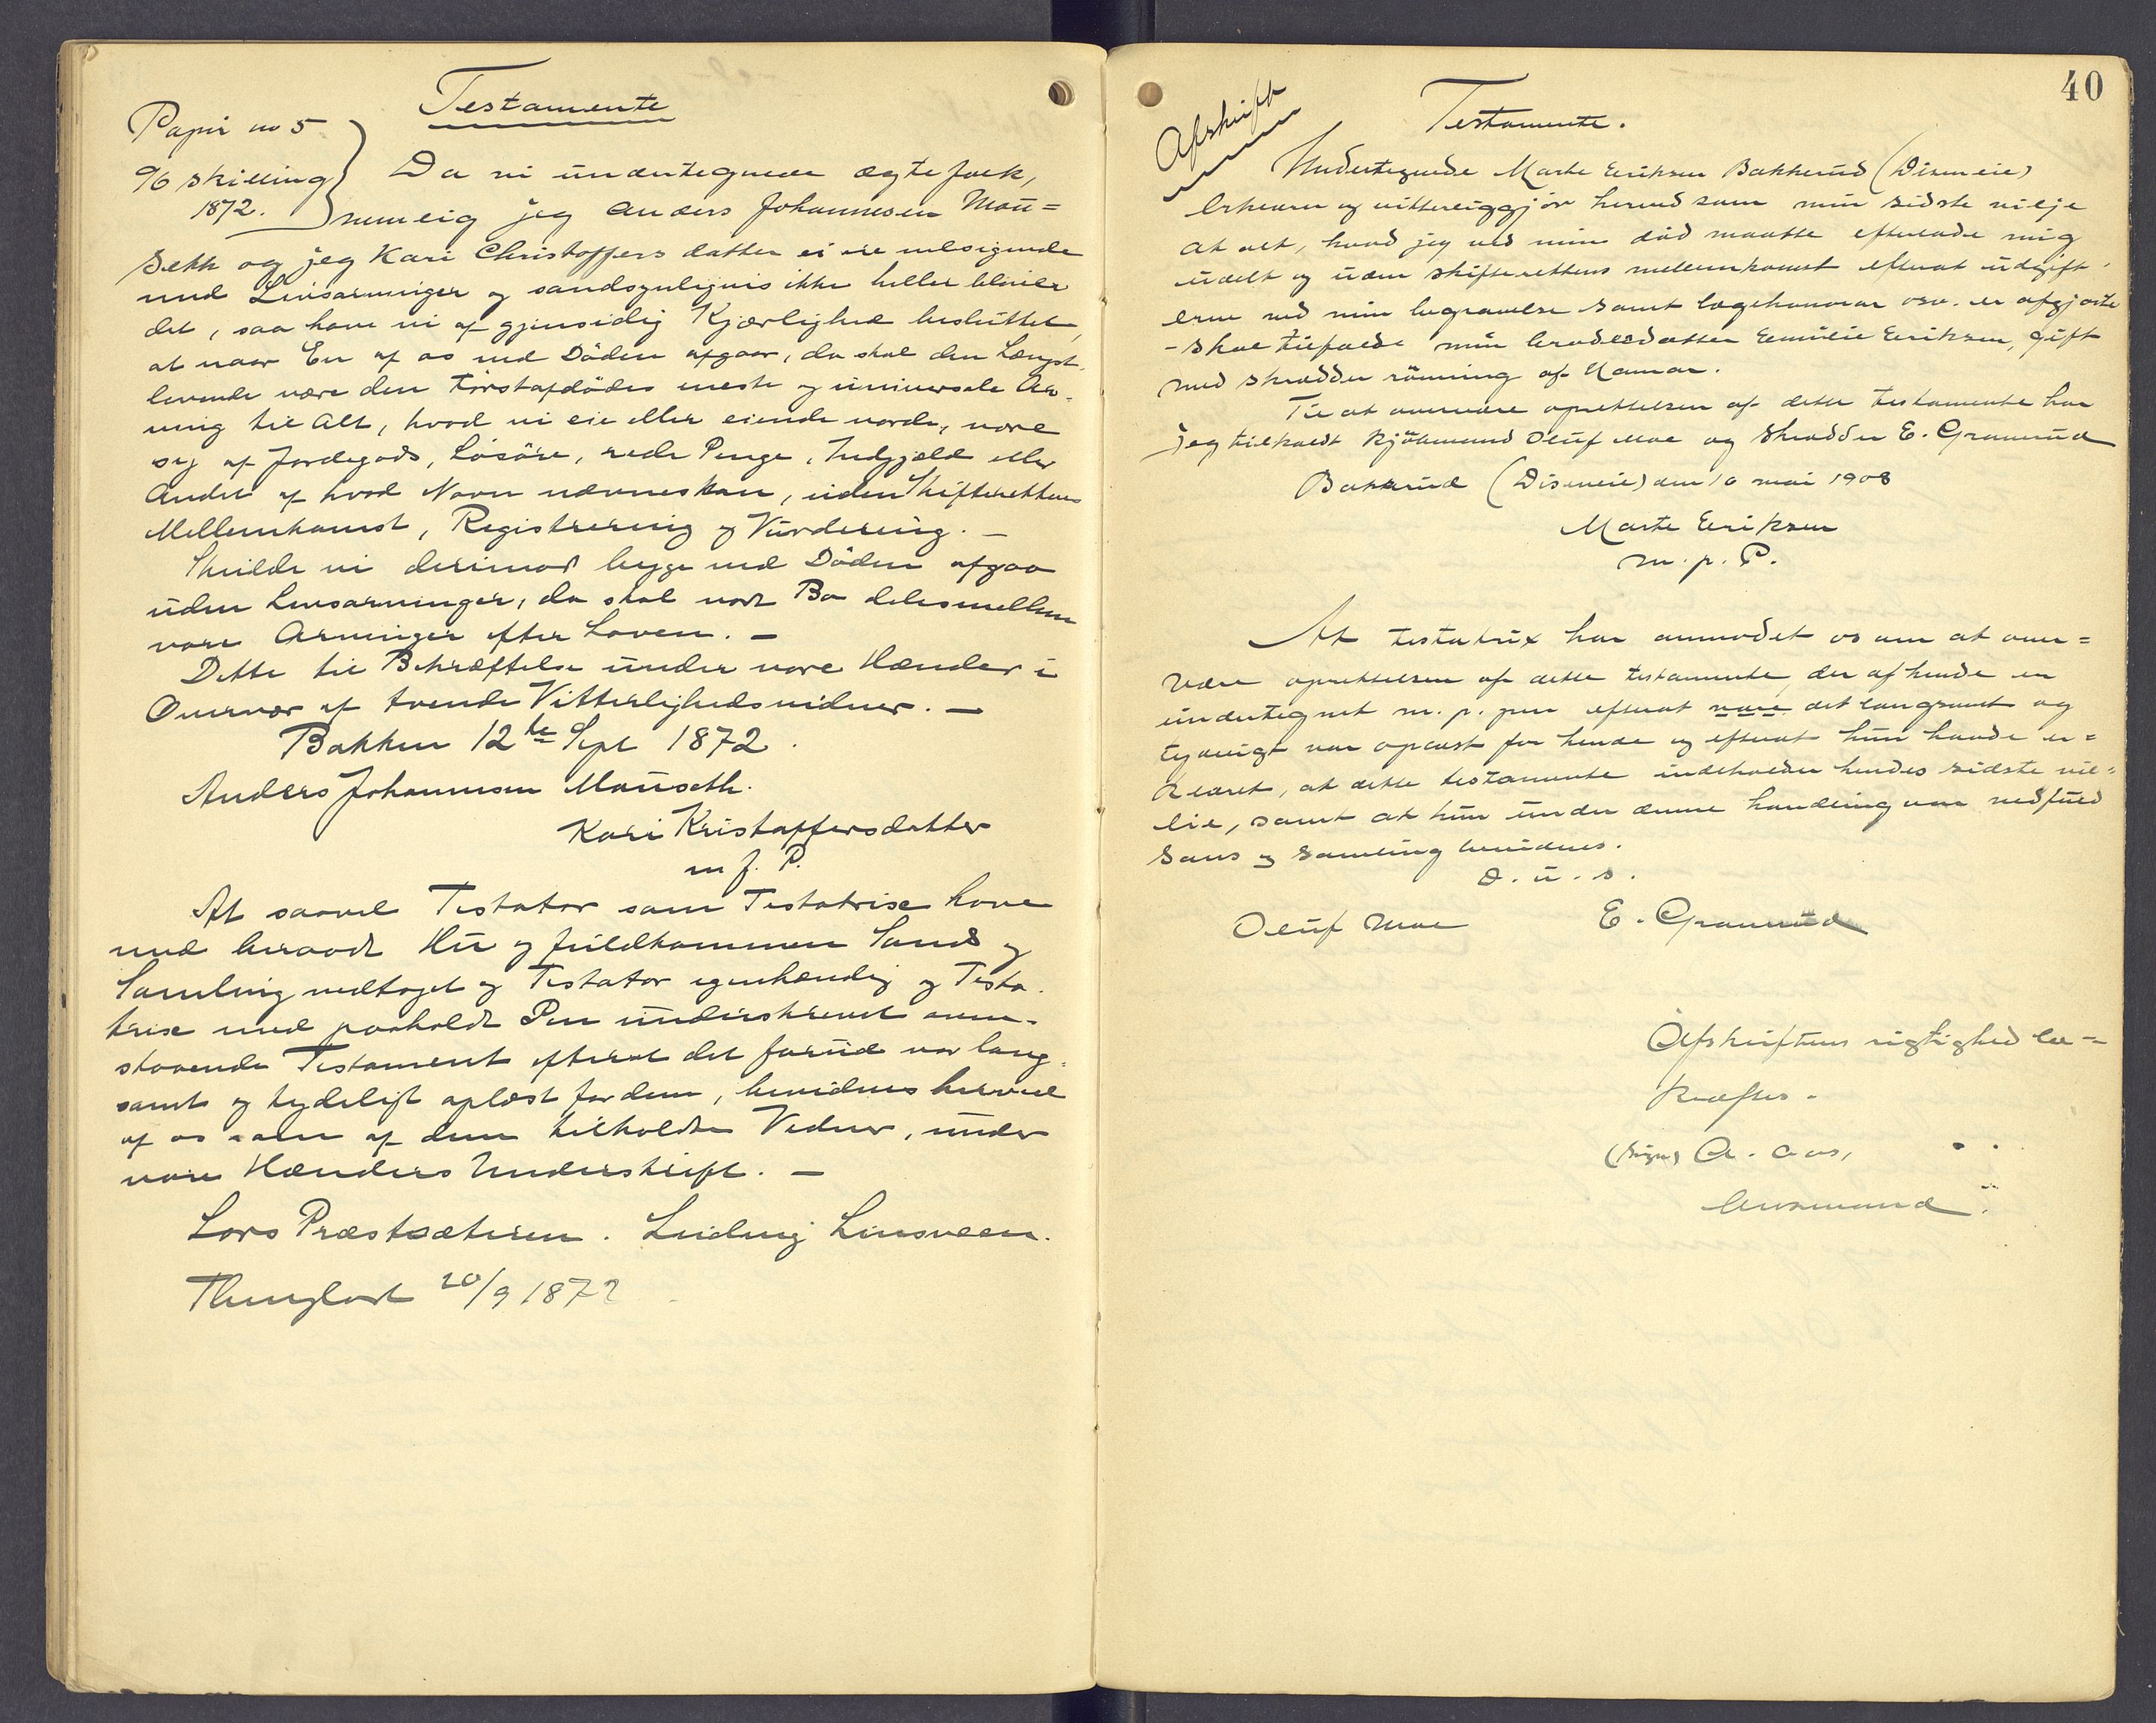 Testamente
Papir no 5
96 skilling
1872.
Da vi undertegnede ægtefolk,
nemlig jeg Anders Johannesen Mau=
seth og jeg Kari Christoffersdatter ei ere velsignede
med Livsarvinger og sandsynligvis ikke heller bliver
det, saa have vi af gjensidig Kjærlighed besluttet,
at naar En af os ved Döden afgaar, da skal den Længst-
levende være den Förstafdödes eneste og universale Ar-
ving til Alt, hvad vi eie eller eiende vorde, være
sig af Jordegods, Lösöre, rede Penge, Indgjæld eller
Andet af hvad Navn nævnes kan, uden Skifterettens
Mellemkomst, Registrering og Vurdering. —
Skulde vi derimod begge ved Döden afgaa
uden Livsarvinger, da skal vort Bo deles mellem
vore Arvinger efter Loven. —
Dette til Bekræftelse under vore Hænder i
Overvær af tvende Vitterlighedsvidner. —
Bakken 12te Sept 1872.
Anders Johannesen Mauseth.
Kari Kristoffersdatter
m f. P.
At saavel Testator som Testatrise have
med beraadt Hu og fuldkommen Sands og
Samling vedtaget og Testator egenhændig og Testa-
trise med paaholdt Pen underskrevet oven-
staaende Testament efterat det forud var lang-
samt og tydeligt oplæst for dem, bevidnes herved
af os som af dem tilkaldte Vidner, under
vore Hænders Underskrift. —
Lars Præstsæteren. Ludvig Linsveen.
Thinglæst 20/9 1872
40
Afskrift
Testamente.
Undertegnede Marte Eriksen Bakkerud (Diseneie)
erklærer og vitterliggjör herved som min sidste vilje
at alt, hvad jeg ved min död maatte efterlade mig
udelt og uden skifterettens mellemkomst efterat udgift-
erne ved min begravelse samt lægehonorar osv. er afgjorte
- skal tilfalde min brodersdatter Emilie Eriksen, gift
med skrædder Rönning af Hamar.
Til at overvære oprettelsen af dette testamente har
jeg tilkaldt kjöbmand Oluf Moe og skrædder E. Gramrud
Bakkerud (Diseneie) den 10 mai 1908
Marte Eriksen
m. p. P.
At testatrix har anmodet os om at over=
være oprettelsen af dette testamente, der af hende er
undertegnet m. p. pen efterat vare det langsomt og
tydeligt var oplæst for hende og efterat hun havde er=
klæret, at dette testamente indeholder hendes sidste vil=
lie, samt at hun under denne handling var ved fuld
Sans og Samling bevidnes.
D. u. s.
Oluf Moe E. Gramrud
Afskriftens rigtighed be=
kræftes.
(sign) A. Aas,
lensmand